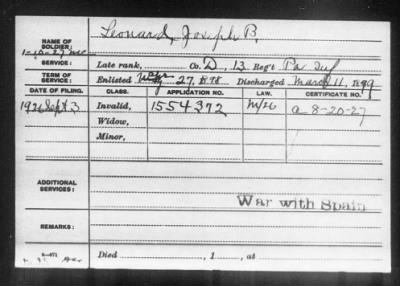 NAME OF SOLDIER: Leonard, Joseph B.
SERVICE: Late rank, Co. D, 13 Reg't Pa Inf
TERM OF SERVICE: Enlisted 27, 1898 Discharged March 11, 1899
DATE OF FILING. CLASS. APPLICATION NO. LAW. CERTIFICATE NO.
1926 Sept 3 Invalid, 1554372 a 8-20-27
Widow,
Minor,
ADDITIONAL SERVICES:
War with Spain
REMARKS:
Died , 1 , at